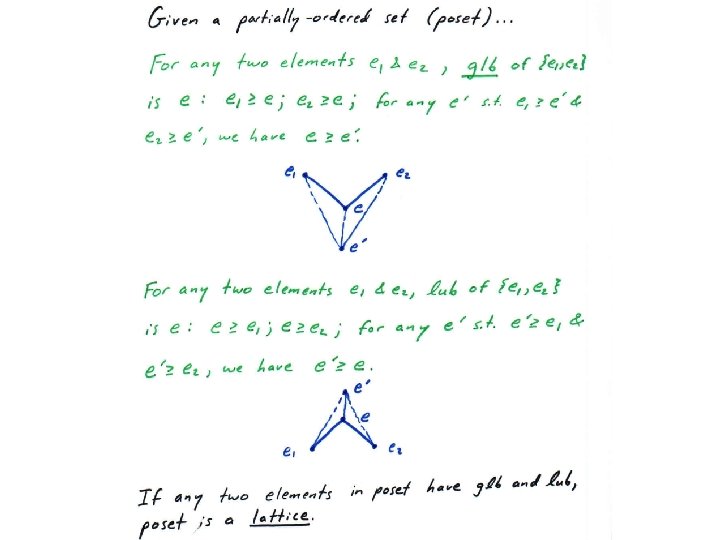 Given a partially-ordered set (poset)...
For any two elements e₁ & e₂, glb of {e₁,e₂}
is e : e₁ ≥ e; e₂ ≥ e; for any e' s.t. e₁ ≥ e' &
e₂ ≥ e', we have e ≥ e'.
e₁ e₂
e
e'
For any two elements e₁ & e₂, lub of {e₁,e₂}
is e : e ≥ e₁; e ≥ e₂; for any e' s.t. e' ≥ e₁ &
e' ≥ e₂, we have e' ≥ e.
e'
e
e₁ e₂
If any two elements in poset have glb and lub,
poset is a lattice.